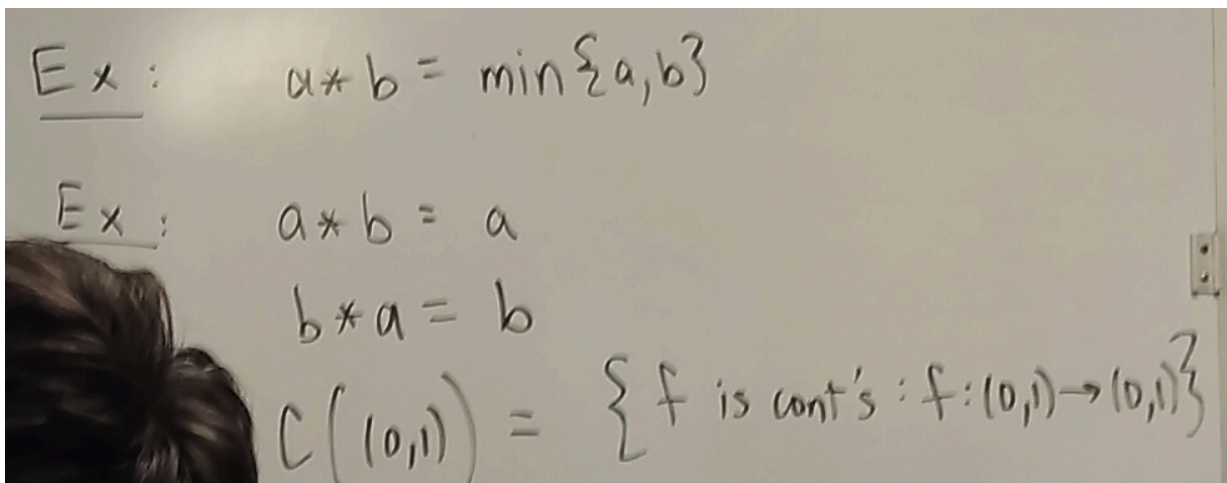 Ex: a*b = min{a,b}
Ex: a*b = a
b*a = b
C((0,1)) = {f is cont's : f:(0,1)→(0,1)}